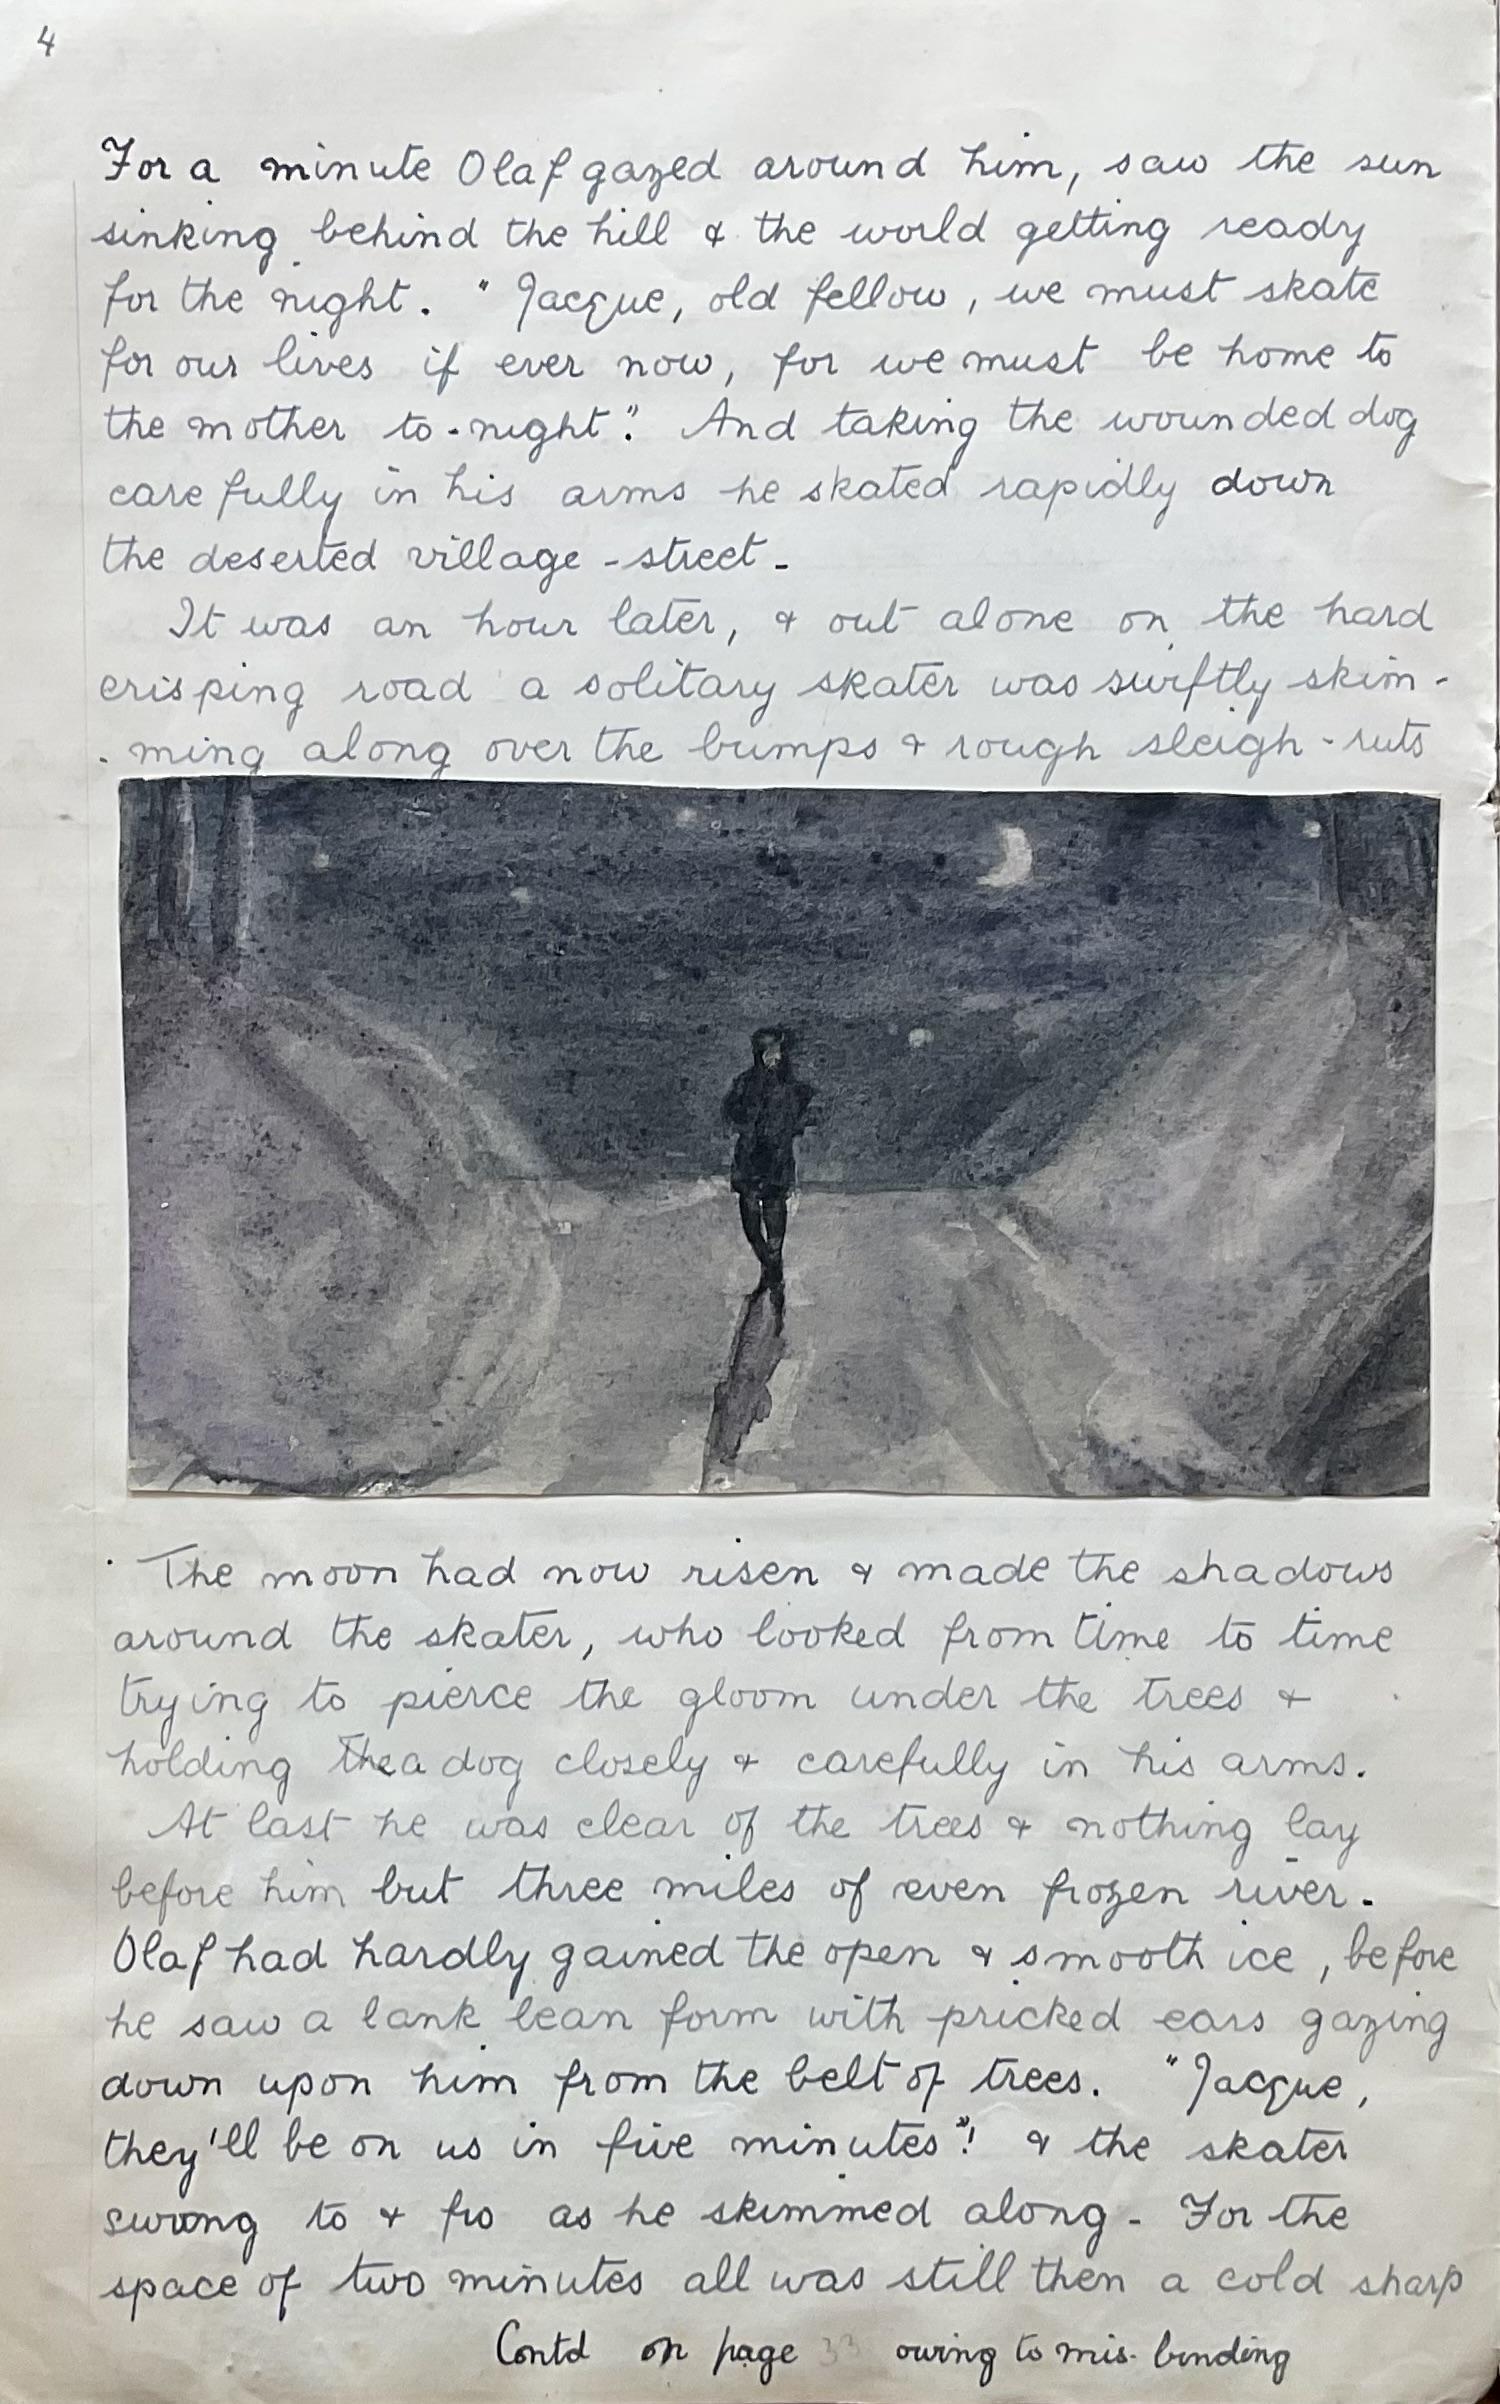 4
For a minute Olaf gazed around him, saw the sun
sinking behind the hill & the world getting ready
for the night. "Jacque, old fellow, we must skate
for our lives if ever now, for we must be home to
the mother to-night". And taking the wounded dog
carefully in his arms he skated rapidly down
the deserted village-street-
It was an hour later, & out alone on the hard
crisping road a solitary skater was swiftly skim-
-ming along over the bumps & rough sleigh-ruts
The moon had now risen & made the shadows
around the skater, who looked from time to time
trying to pierce the gloom under the trees &
holding the dog closely & carefully in his arms.
At last he was clear of the trees & nothing lay
before him but three miles of even frozen river.
Olaf had hardly gained the open & smooth ice, before
he saw a lank lean form with pricked ears gazing
down upon him from the belt of trees. "Jacque,
they'll be on us in five minutes"! & the skater
swung to & fro as he skimmed along - For the
space of two minutes all was still then a cold sharp
Contd on page 33 owing to mis-binding